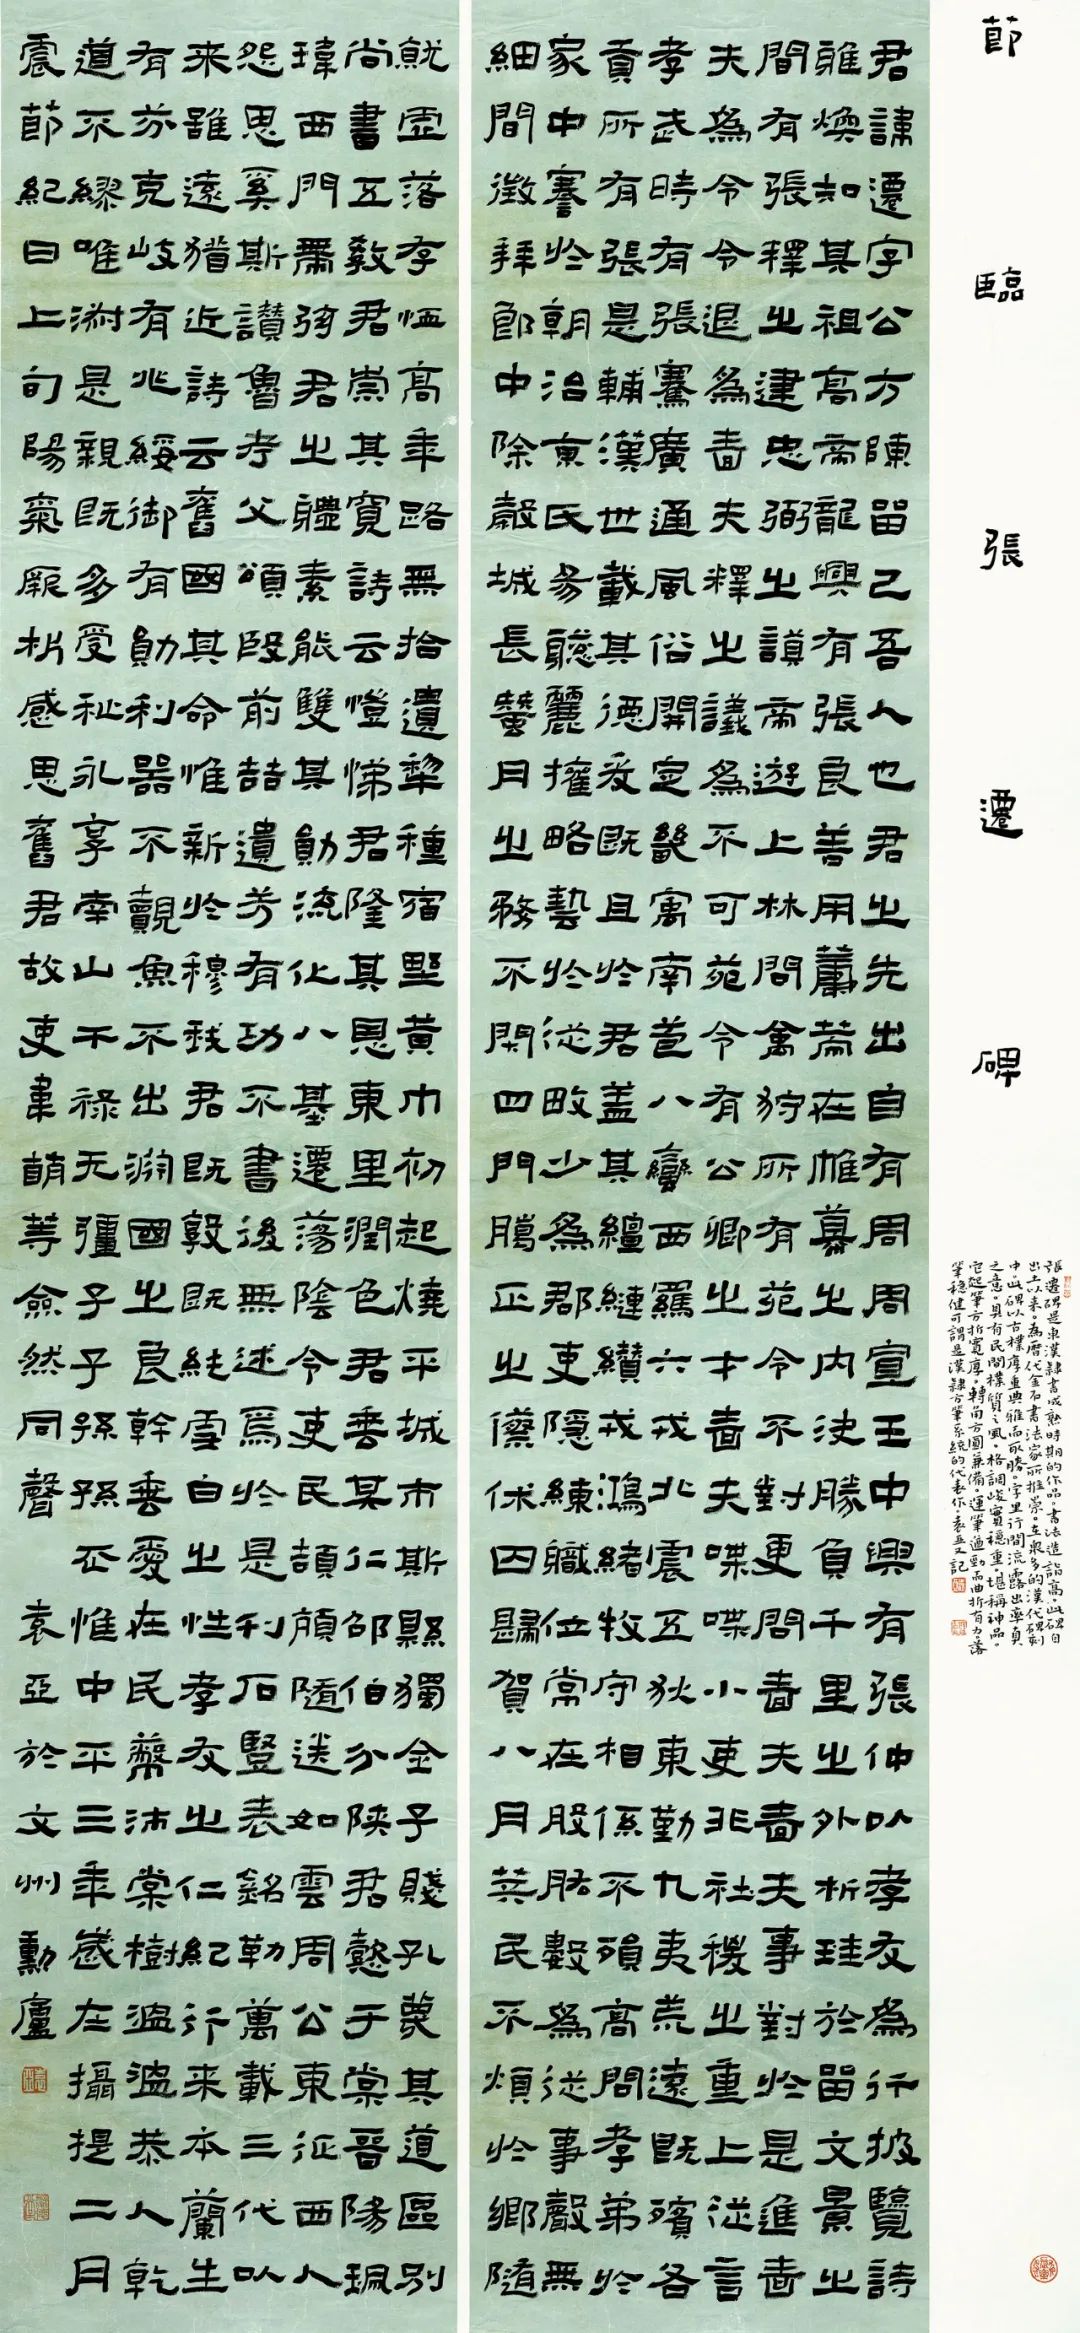 節臨張遷碑
張遷碑是東漢隸書成熟時期的作品。書法造詣高。此碑自
出土以来。為歷代金石書法家所推崇。在眾多的漢代碑刻
中。此碑以古樸厚重典雅而取勝。字里行間流露出率真
之意。具有民間樸質之風。格調峻實穩重。堪稱神品。
它起筆方折寬厚。轉角方圓兼備。運筆遒勁而曲折有力。落
筆穩健可謂是漢隸方筆系統的代表作。袁亞又記
君諱遷字公方陳留己吾人也君之先出自有周周宣王中興有張仲以孝友為行披覽詩
雅煥知其祖高帝龍興有張良善用籌策在帷幕之內決勝負千里之外析珪於留文景之
間有張釋之建忠弼之謨帝遊上林問禽狩所有苑令不對更問嗇夫嗇夫事對於是進嗇
夫為令令退為嗇夫釋之議為不可苑令有公卿之才嗇夫喋喋小吏非社稷之重上從言
孝武時有張騫廣通風俗開定畿寓南苞八蠻西羅六戎北震五狄東勤九夷荒遠既殯各
貢所有張是輔漢世載其德爰既且於君蓋其繵縺纘戎鴻緒牧守相係不殞高問孝弟於
家中謇於朝治京氏易聰麗權略藝於從畋少為郡吏隱練職位常在股肱數為從事聲無
細間徵拜郎中除穀城長蠶月之務不閉四門臘正之僚休囚歸賀八月筭民不煩於鄉隨
就虛落存恤高年路無拾遺犁種宿野黃巾初起燒平城市斯縣獨全子賤孔蔑其道區別
尚書五教君崇其寬詩云愷悌君隆其恩東里潤色君垂其仁邵伯分陝君懿于棠晉陽珮
瑋西門帶弦君之體素能雙其勛流化八基遷蕩陰令吏民頡頏隨送如雲周公東征西人
怨思奚斯讚魯考父頌殷前喆遺芳有功不書後無述焉於是刊石豎表銘勒萬載三代以
来雖遠猶近詩云舊國其命惟新於穆我君既敦既純雪白之性孝友之仁紀行来本蘭生
有芬克岐有兆綏御有勛利器不覿魚不出淵國之良幹垂愛在民蔽沛棠樹温温恭人乾
道不繆唯淑是親既多受祉永享南山干祿无疆子子孫孫丕惟中平三年歲在攝提二月
震節紀日上旬陽氣厥析感思舊君故吏韋萌等僉然同聲 袁亞於文州勳廬